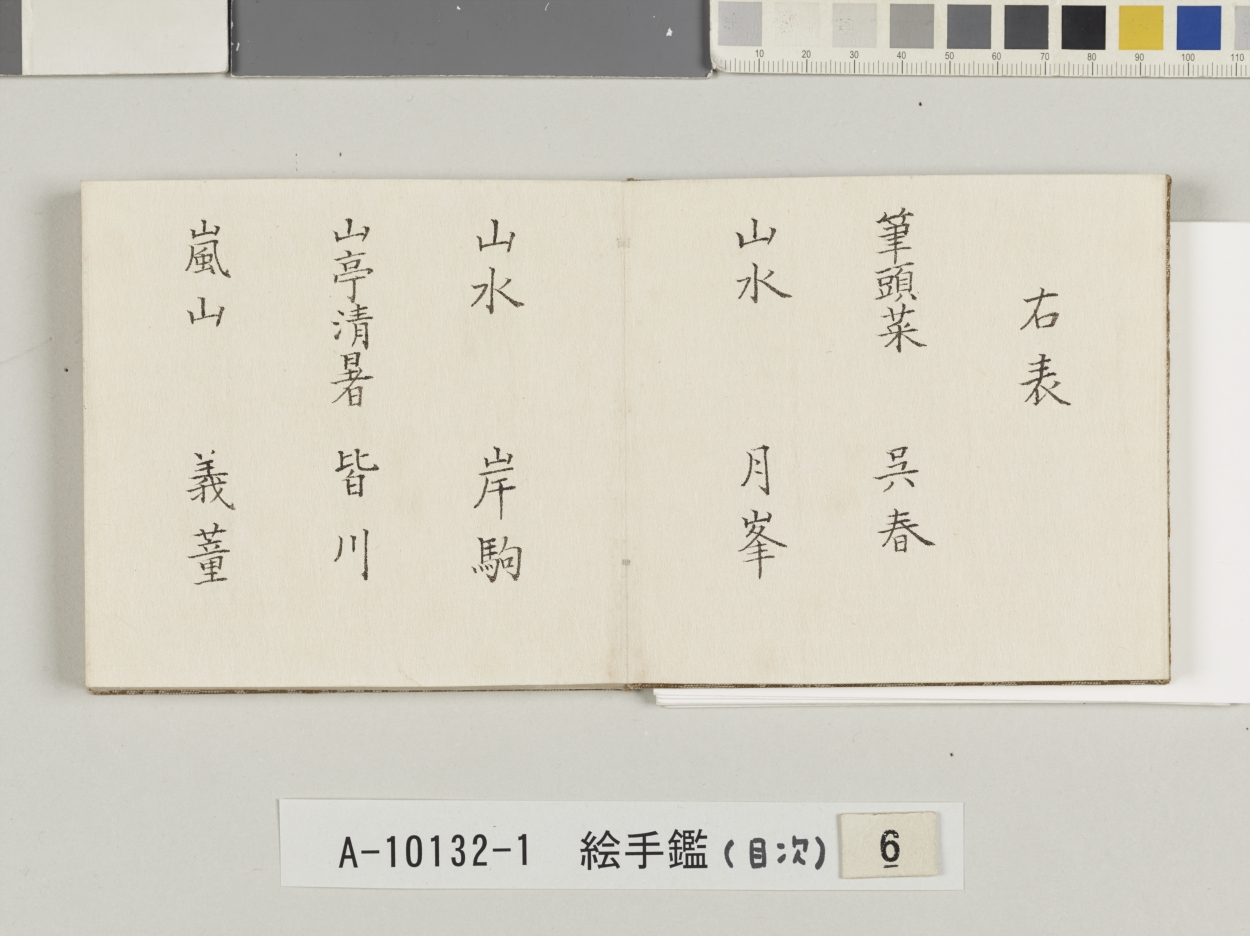 10 20 30 40 50 60 70 80 90 100 110
右表
筆頭菜 呉春
山水 月峯
山水 岸駒
山亭清暑 皆川
嵐山 義董
A-10132-1 絵手鑑(目次) 6